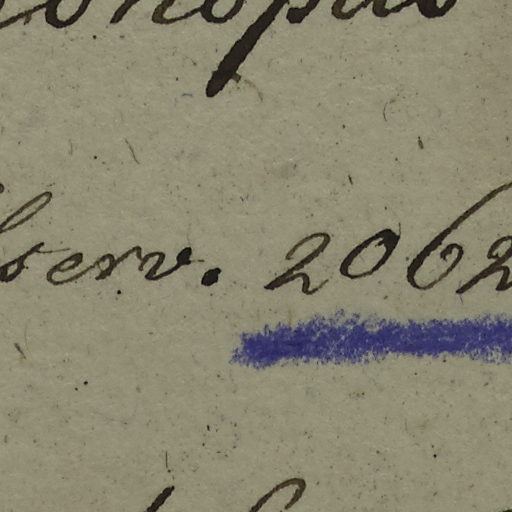 onopus
bserv. 2062